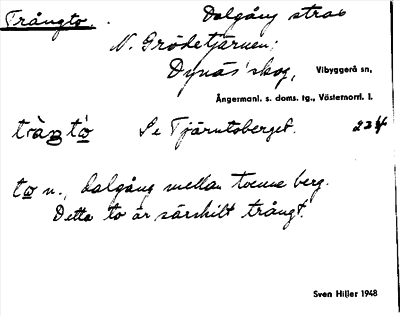 Trångto. Dalgång strax
N. Grödetjärnen,
Dynäs' skog, Vibyggerå sn,
Ångermanl. s. doms. tg., Västernorrl. l.
Se Tjärutsberget. 224
to n., dalgång mellan tvenne berg.
Detta to är särskilt trångt.
Sven Hiller 1948